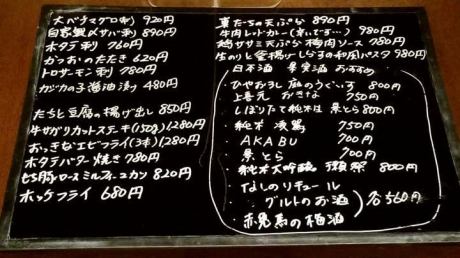 大バチマグロ刺 920円
自家製〆サバ刺 890円
ホタテ刺 760円
かつおのたたき 620円
トロサーモン刺 780円
カジカの子醤油漬 480円
たちと豆腐の揚げ出し 850円
牛サガリカットステキ(150g) 1280円
おっきなエビフライ(3本) 1280円
ホタテバター焼き 780円
ロースミルフィーユカツ 820円
ホッケフライ 680円
真たちの天ぷら 890円
牛肉レッドカレー(辛いです…) 980円
鶏ササミ天ぷら梅肉ソース 780円
生のりと釜揚げしらすの和風パスタ 980円
日本酒 果実酒 おすすめ
・ひやおろし 庭のうぐいす 800円
・上喜元 おきな 750円
・しぼりたて純米 景とら 800円
・純米 凌駕 750円
・AKABU 700円
・景とら 700円
・純米大吟醸 獺祭 800円
・なしのリキュール
・グルトのお酒
・赤兎馬の梅酒
各560円